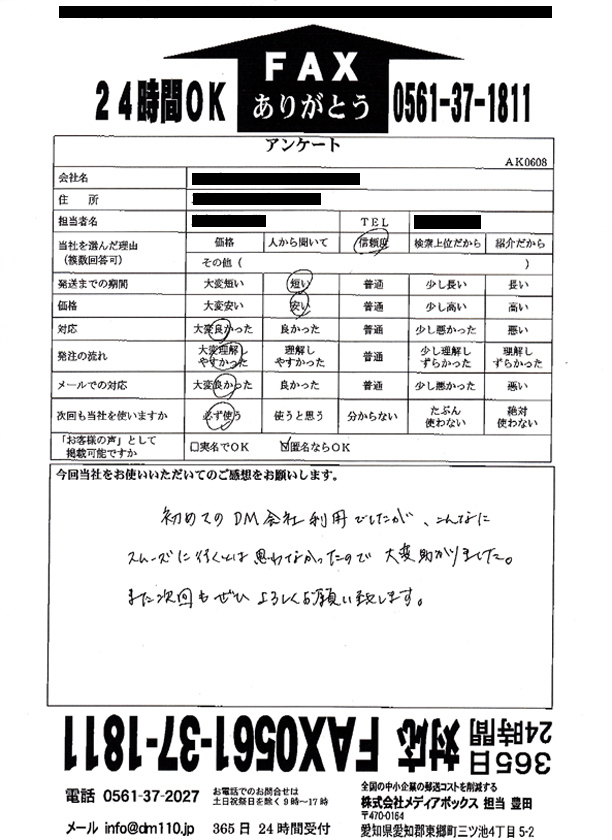 FAX
ありがとう
24時間OK
0561-37-1811
アンケート
AK0608
会社名
住 所
担当者名 TEL
当社を選んだ理由 (複数回答可) 価格 人から聞いて 信頼度 検索上位だから 紹介だから
その他 ( )
発送までの期間 大変短い 短い 普通 少し長い 長い
価格 大変安い 安い 普通 少し高い 高い
対応 大変良かった 良かった 普通 少し悪かった 悪い
発注の流れ 大変理解しやすかった 理解しやすかった 普通 少し理解しずらかった 理解しずらかった
メールでの対応 大変良かった 良かった 普通 少し悪かった 悪い
次回も当社を使いますか 必ず使う 使うと思う 分からない たぶん使わない 絶対使わない
「お客様の声」として掲載可能ですか □実名でOK ☑匿名ならOK
今回当社をお使いいただいてのご感想をお願いします。
初めてのDM会社利用でしたが、こんなに
スムーズに行くとは思わなかったので大変助かりました。
また次回もぜひよろしくお願い致します。
365日
24時間
対応 FAX0561-37-1811
電話 0561-37-2027
お電話でのお問合せは
土日祝祭日を除く9時~17時
メール info@dm110.jp
365日24時間受付
全国の中小企業の郵送コストを削減する
株式会社メディアボックス 担当 豊田
〒470-0164
愛知県愛知郡東郷町三ツ池4丁目5-2